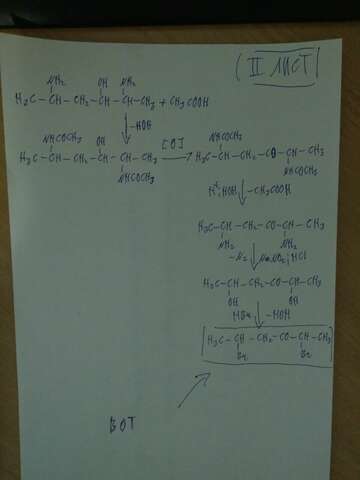 (II ЛИСТ)
NH₂ OH NH₂
H₃C-CH-CH₂-CH-CH-CH₃ + CH₃COOH
-HOH
NHCOCH₃ OH
H₃C-CH-CH₂-CH-CH-CH₃
NHCOCH₃
[O]
NHCOCH₃
H₃C-CH-CH₂-CO-CH-CH₃
NHCOCH₃
HOH -CH₃COOH
H₃C-CH-CH₂-CO-CH-CH₃
NH₂ NH₂
-N₂ NaNO₂, HCl
H₃C-CH-CH₂-CO-CH-CH₃
OH OH
HBr -HOH
H₃C-CH-CH₂-CO-CH-CH₃
Br Br
ВОТ